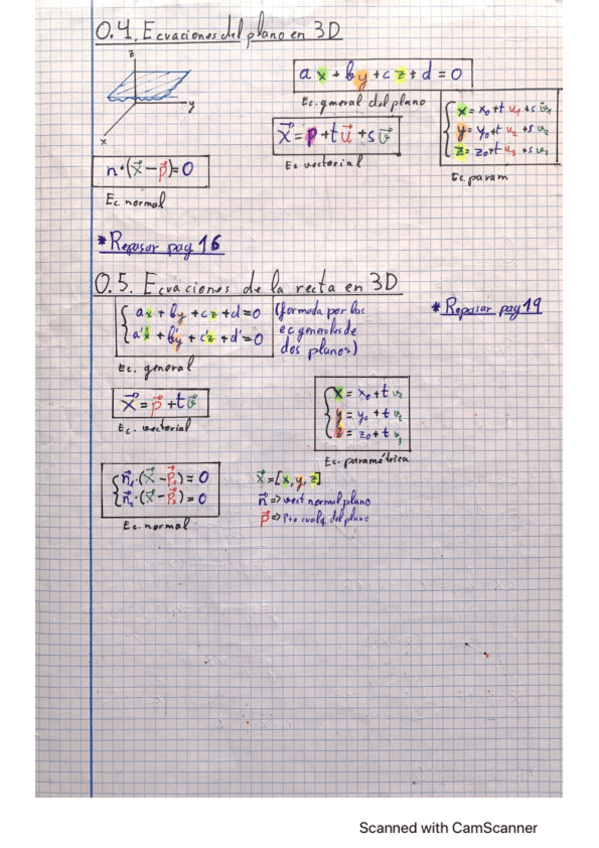 0.4. Ecuaciones del plano en 3D
z
y
x
ax + by + cz + d = 0
Ec. general del plano
x⃗ = p + t u⃗ + s v⃗
Ec vectorial
x = x₀ + t u₁ + s v₁
y = y₀ + t u₂ + s v₂
z = z₀ + t u₃ + s v₃
Ec. param
n · (x⃗ − p⃗) = 0
Ec. normal
* Repasar pag 16
0.5. Ecuaciones de la recta en 3D
ax + by + cz + d = 0
a'x + b'y + c'z + d' = 0
Ec. general
(formada por las
ec generales de
dos planos)
* Repasar pag 19
x⃗ = p⃗ + t v⃗
Ec. vectorial
x = x₀ + t
y = y₀ + t v₂
z = z₀ + t
Ec. paramétrica
n⃗₁ · (x⃗ − p⃗₁) = 0
· (x⃗ − p⃗₂) = 0
Ec. normal
x⃗ = [x, y, z]
n⃗ => vect normal plano
p⃗ => Pto cualq. del plano
Scanned with CamScanner